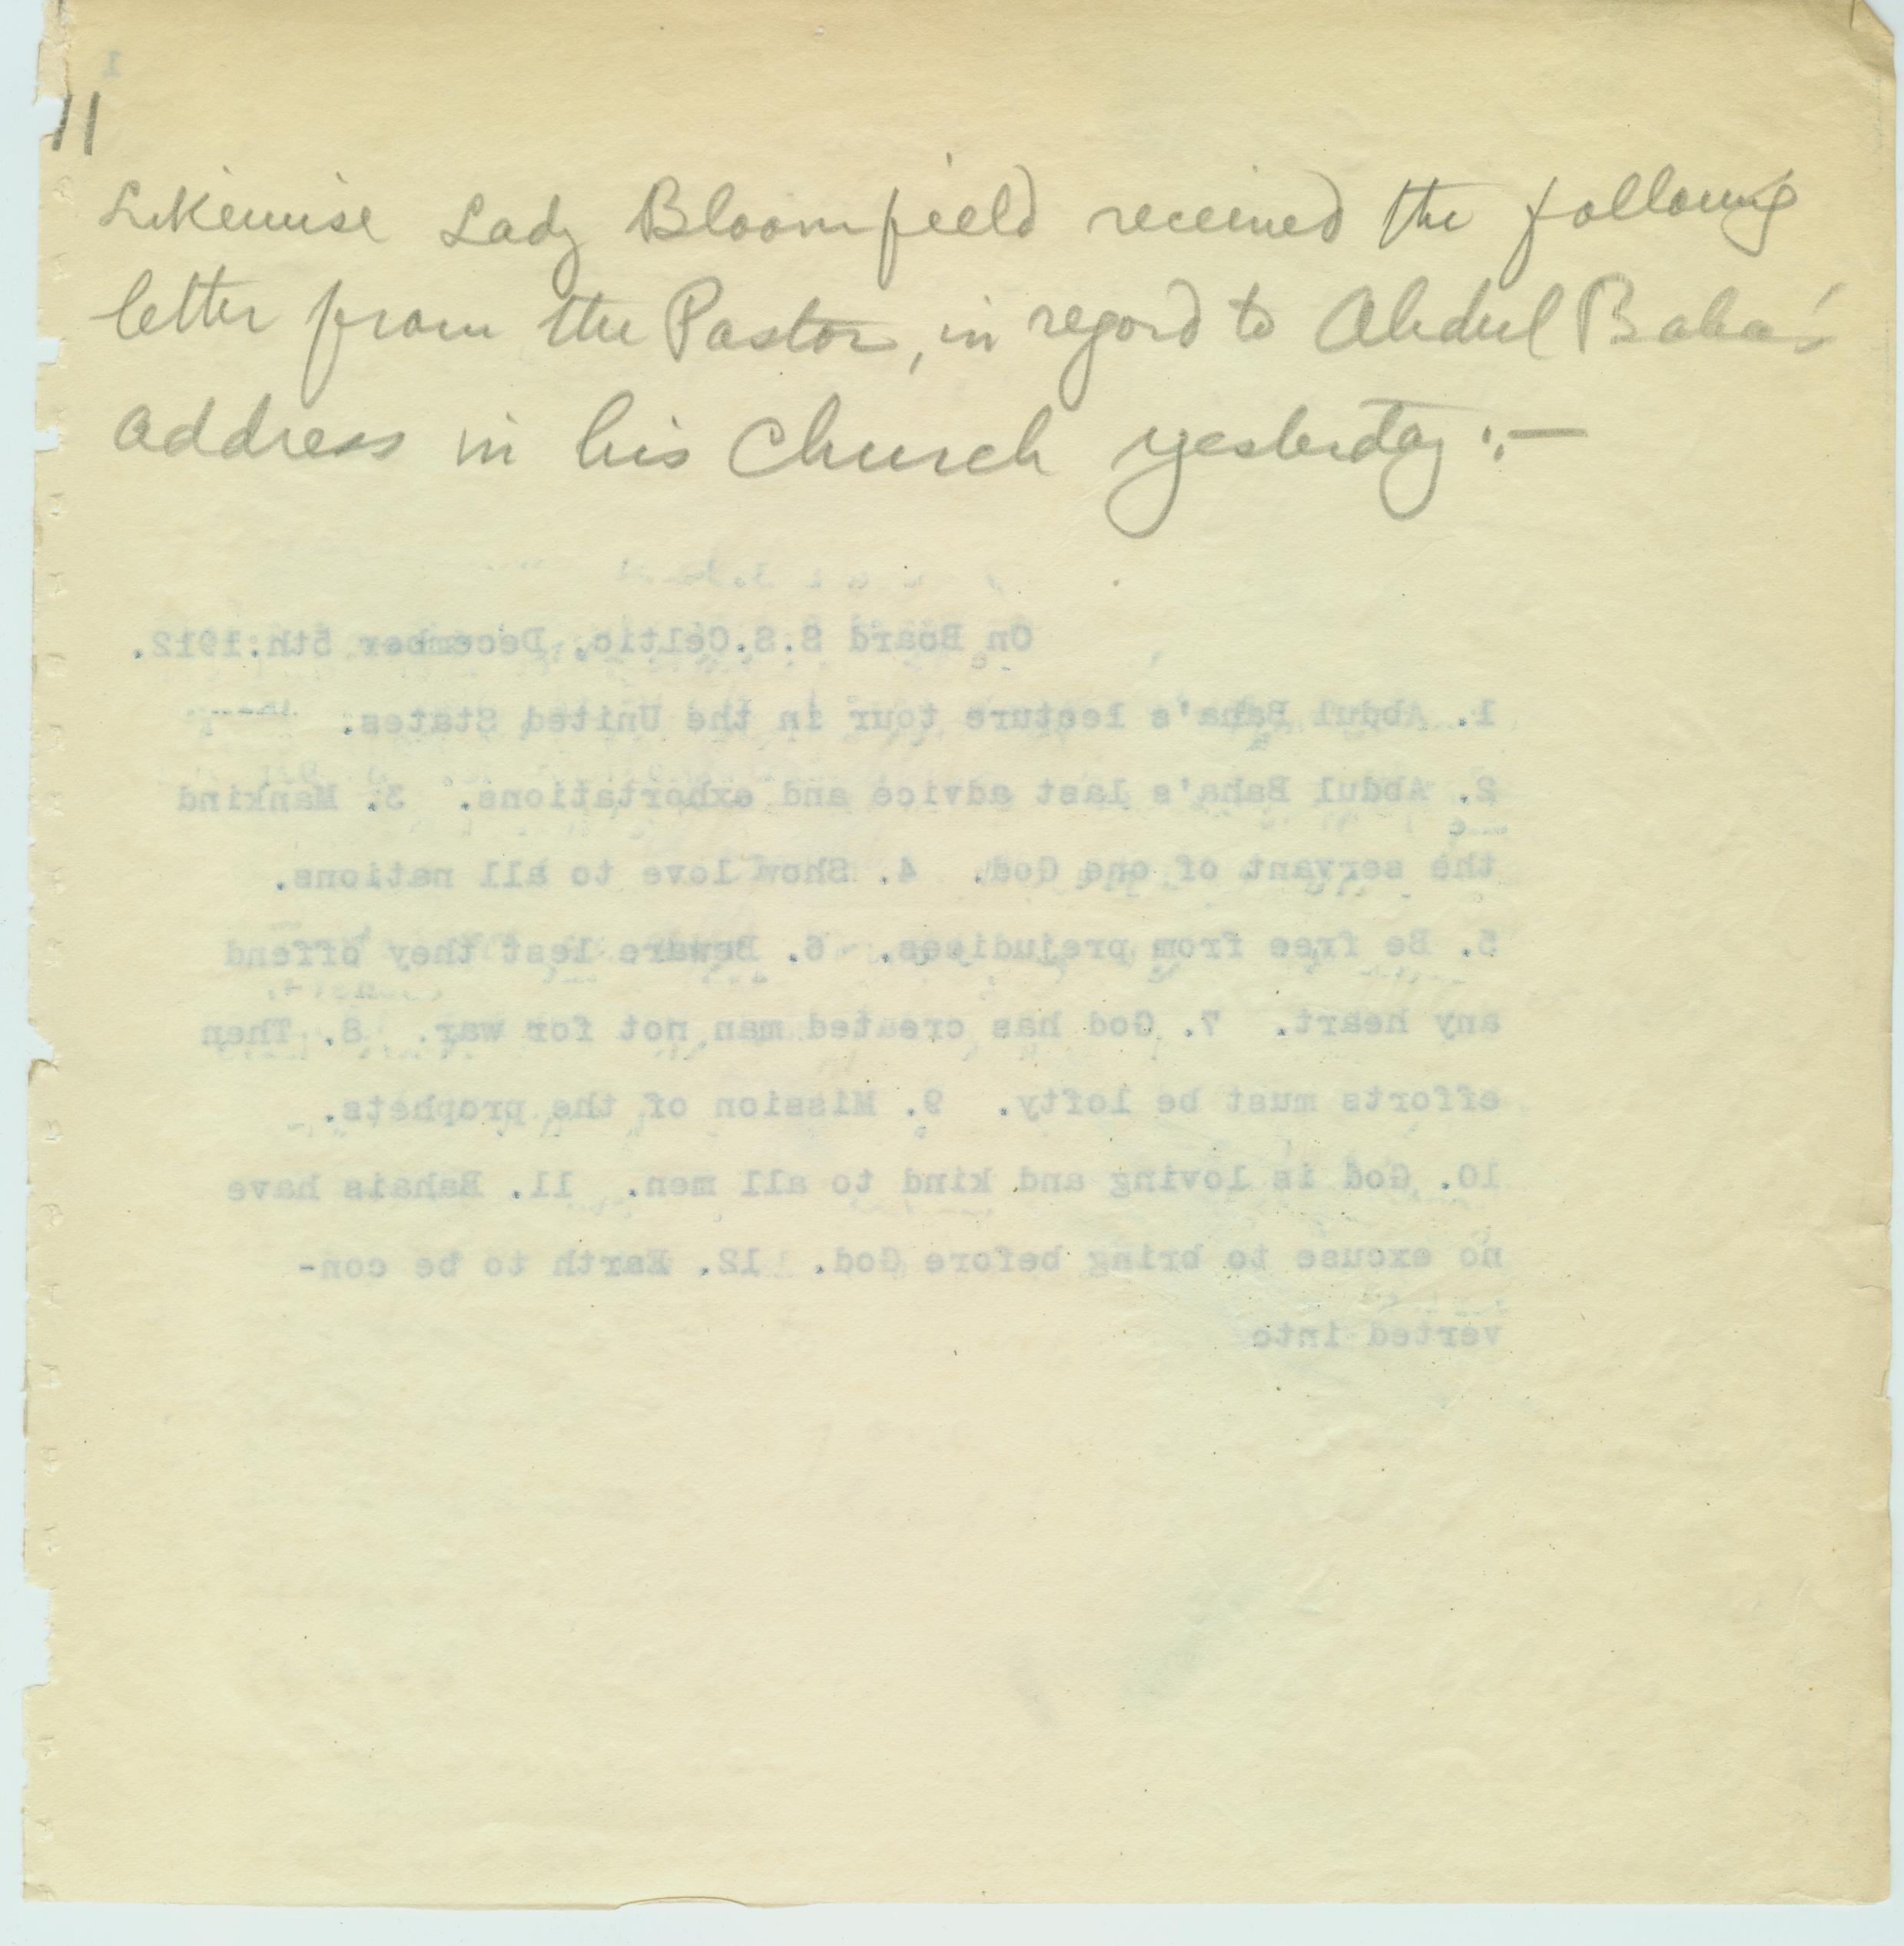 11
Likewise Lady Bloomfield received the following
letter from the Pastor, in regard to Abdul Baha's
address in his Church yesterday :—
1
On Board S.S.Celtic, December 5th:1912.
1. Abdul Baha's lecture tour in the United States.
2. Abdul Baha's last advice and exhortations. 3. Mankind
the servant of one God. 4. Show love to all nations.
5. Be free from prejudices. 6. Beware lest they offend
any heart. 7. God has created man not for war. 8. Then
efforts must be lofty. 9. Mission of the prophets.
10. God is loving and kind to all men. 11. Bahais have
no excuse to bring before God. 12. Earth to be con-
verted into